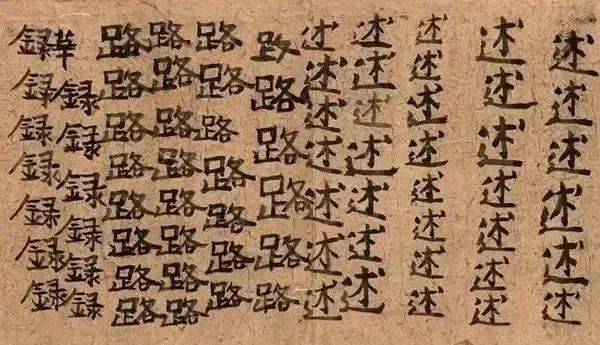 述述述述述述
述述述述述述述
述述述述述述述述
述述述述述述述
述述述述述述述
路路路路路路
路路路路路路路
路路路路路路路路
路路路路路路路路
録録録録録録
録録録録録録録